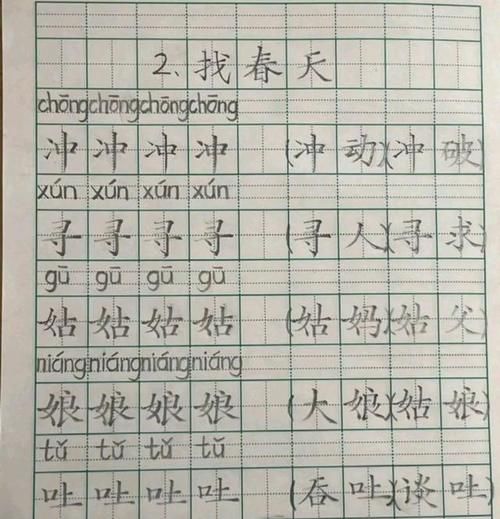 2、找春天
chōng chōng chōng chōng
冲 冲 冲 冲 (冲动)(冲破)
xún xún xún xún
寻 寻 寻 寻 (寻人)(寻求)
gū gū gū gū
姑 姑 姑 姑 (姑妈)(姑父)
niáng niáng niáng niáng
娘 娘 娘 娘 (大娘)(姑娘)
tǔ tǔ tǔ tǔ
吐 吐 吐 吐 (吞吐)(谈吐)